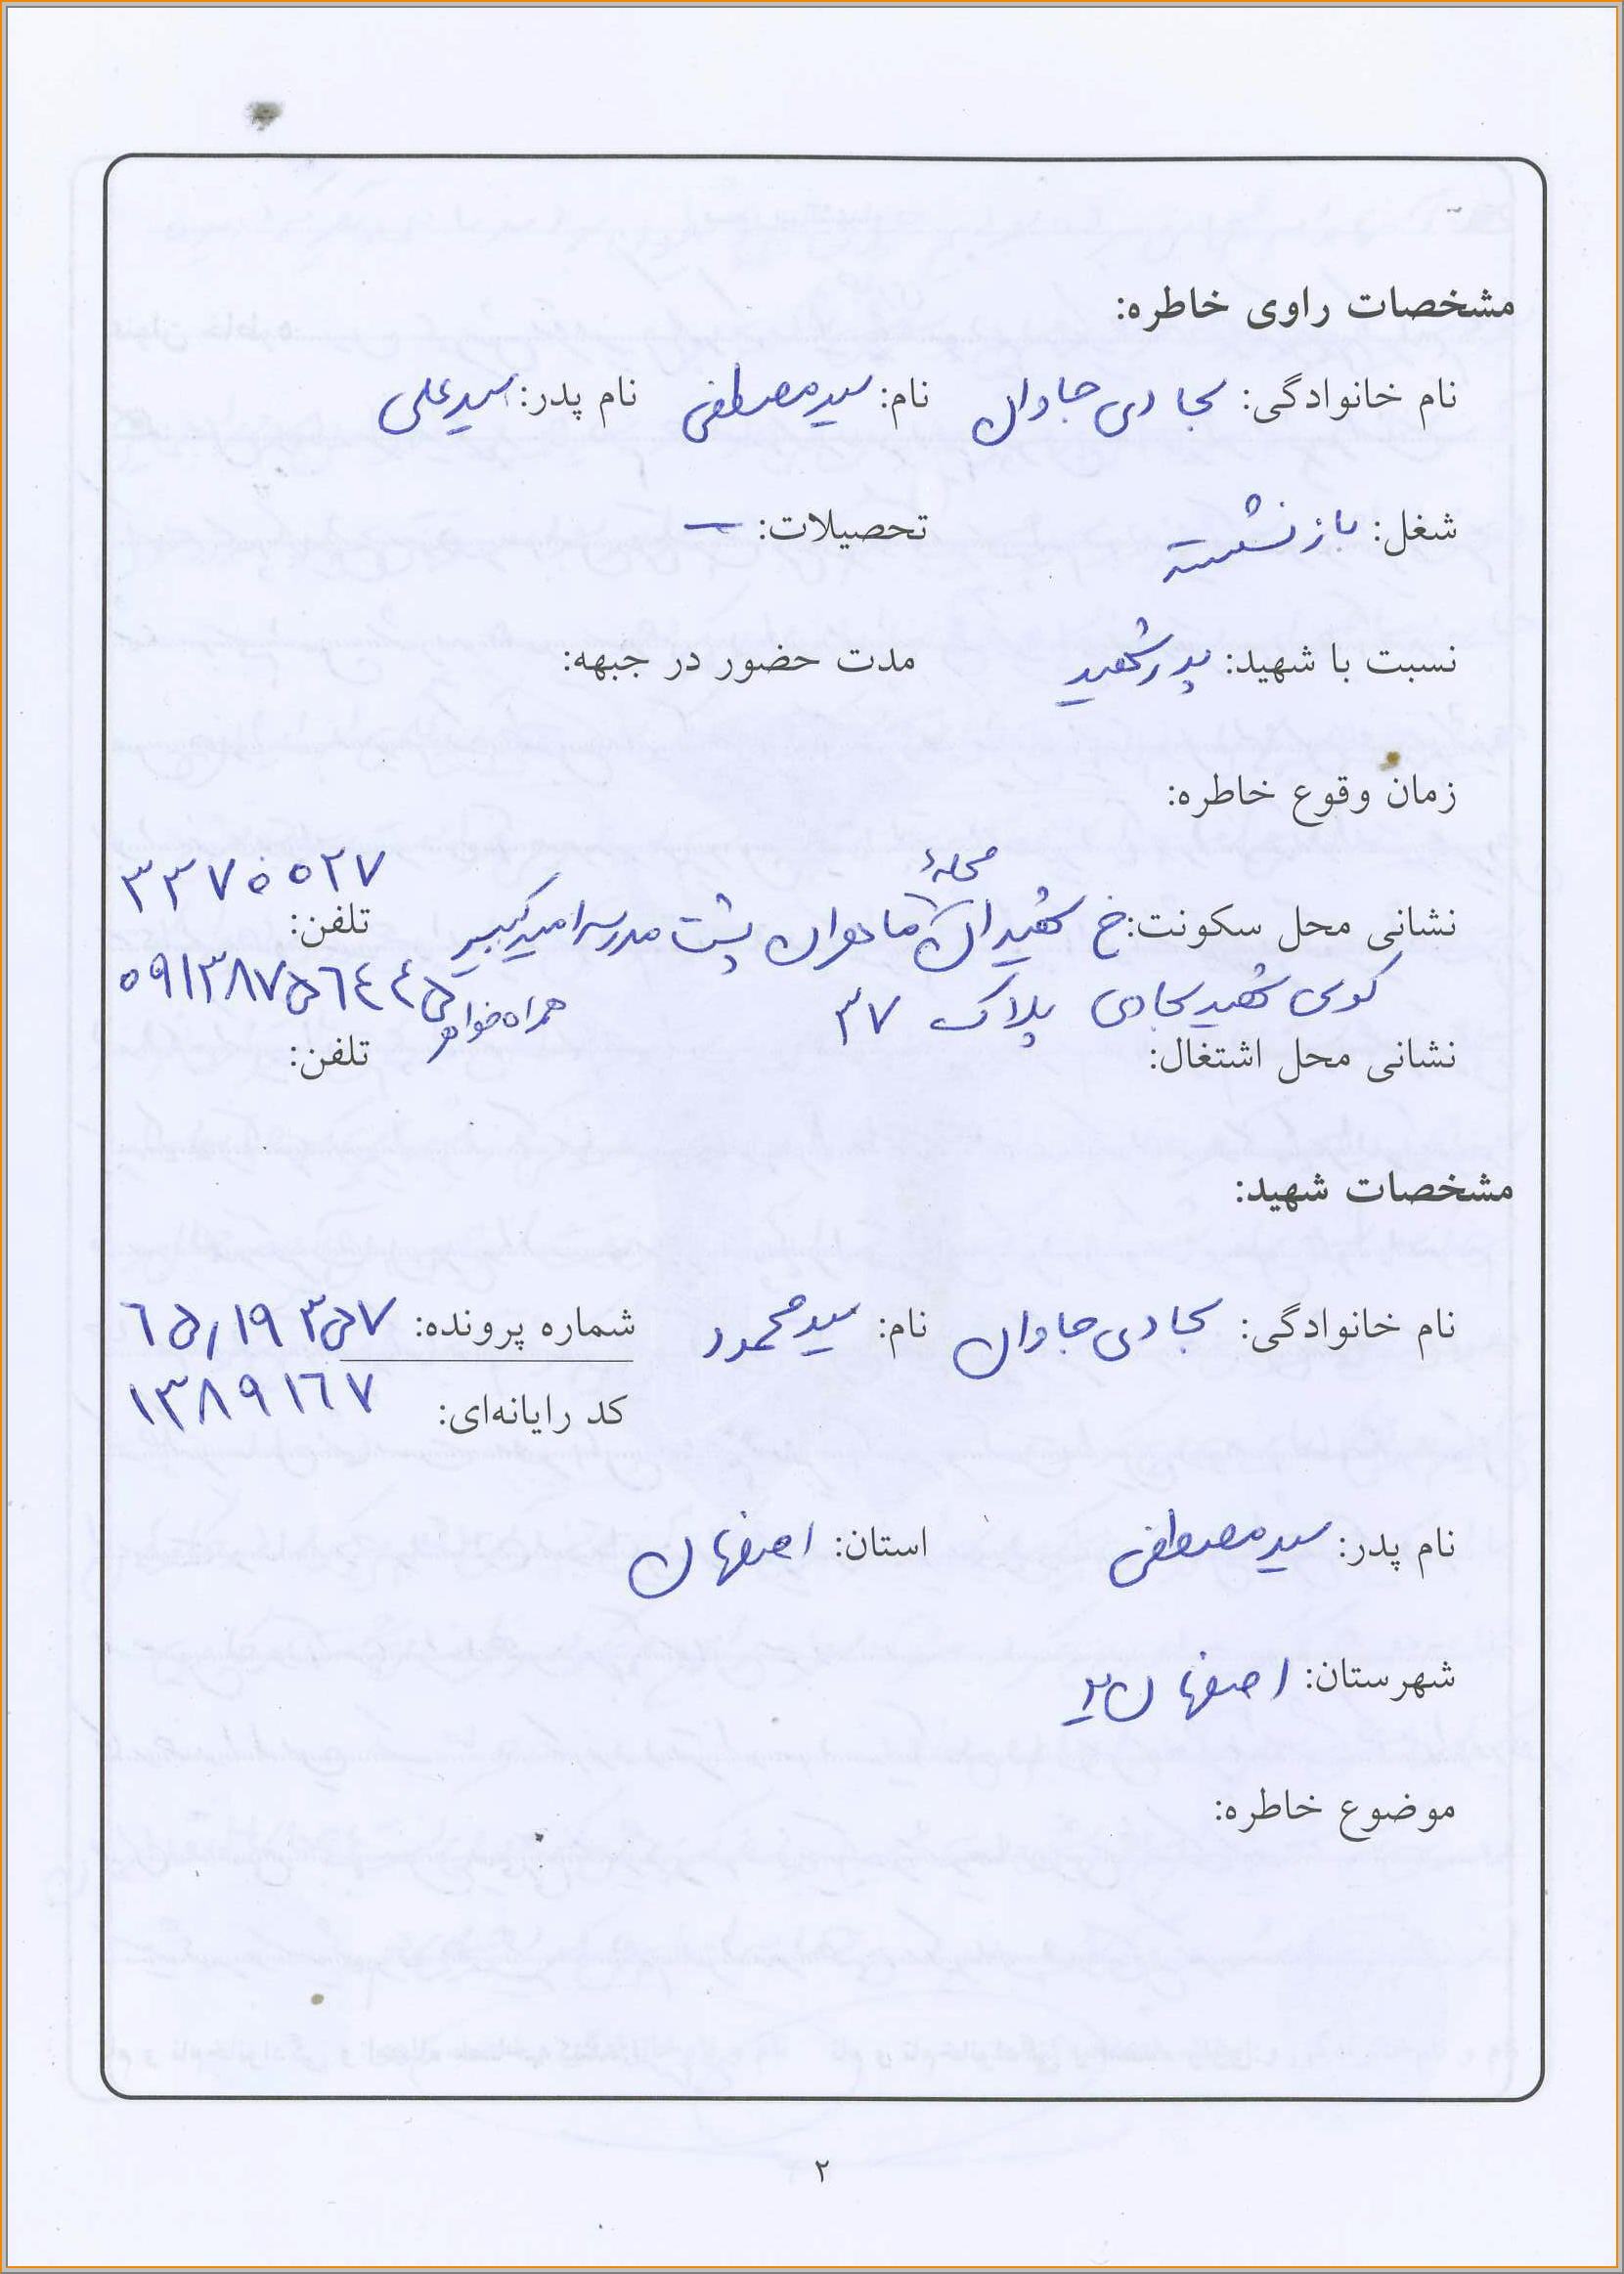 مشخصات راوی خاطره:
نام خانوادگی: سجادی جاوان نام: سیدمصطفی نام پدر: سیدعلی
شغل: بازنشسته تحصیلات: —
نسبت با شهید: پدر شهید مدت حضور در جبهه:
زمان وقوع خاطره:
محله ۳۳۷۰۰۵۲۷
نشانی محل سکونت: خ شهیدان پشت مدرسه امیرکبیر تلفن:
کوی شهید سجادی پلاک ۳۷ همراه خواهر ۰۹۱۳۸۷۵۶۴۴۵
نشانی محل اشتغال: تلفن:
مشخصات شهید:
نام خانوادگی: سجادی جاوان نام: سیدمحمود شماره پرونده: ۶۵٫۱۹۳۵۷
کد رایانه‌ای: ۱۳۸۹۱۶۷
نام پدر: سیدمصطفی استان: اصفهان
شهرستان: اصفهان ۲
موضوع خاطره:
۲